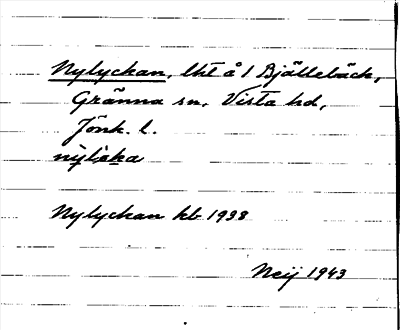 Nylyckan, lht å 1 Bjällebäck,
Gränna sn, Vista hd,
Jönk. l.
Nylyckan kb 1938
Neij 1943